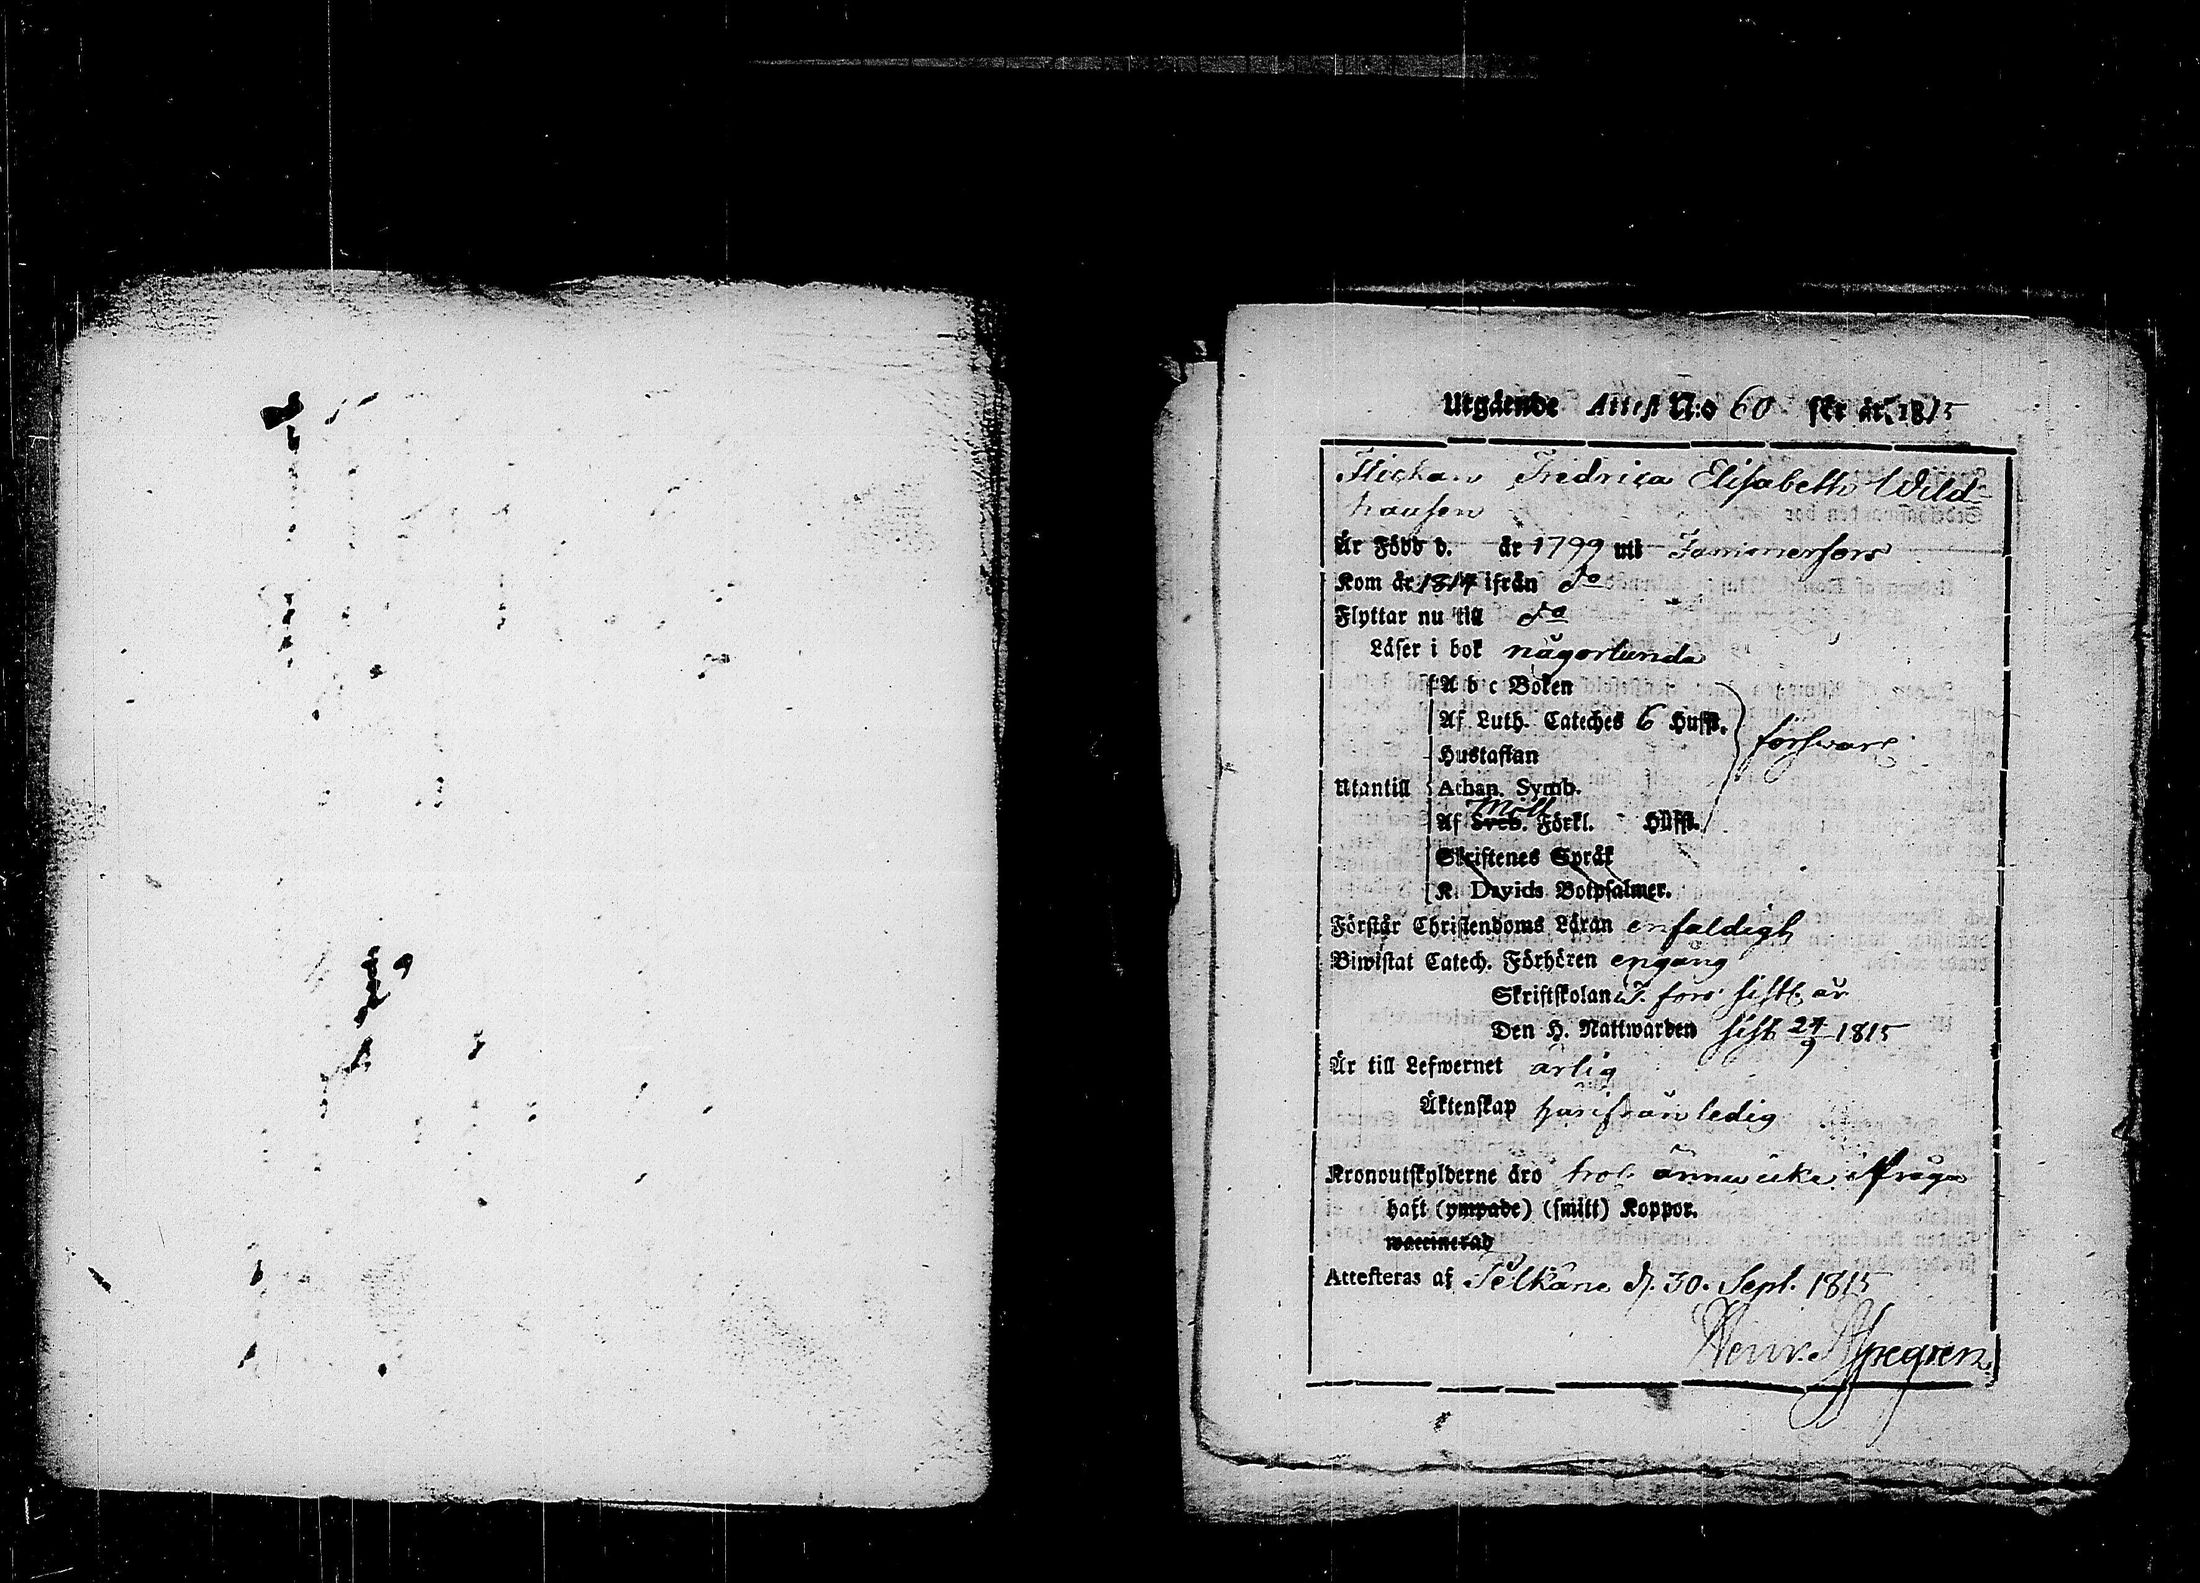 Utgående Attest N:o 60 för år 1815
Flickan Fredrica Elisabeth Wild-
hausen
Är Född d. år 1799 uti Tammerfors
Kom år 1814 ifrån do
Flyttar nu till do
Läser i bok någorlunda
A b c Boken
Af Luth. Cateches 6 Hufst.
Hustaflan
försvarl
Utantill Athan. Symb.
Moll
Af Sveb. Förkl. Hufst.
Skriftenes Språk
K. Davids Botpsalmer.
Förstår Christendoms Läran enfaldigt
Biwistat Catech. Förhören engång
Skriftskolan i T. fors sistl. år
Den H. Nattwarden sist 24/9 1815
Är till Lefwernet ärlig
Äktenskap härifrån ledig
Kronoutskylderne äro icke i fråga
haft (ympade) (smitt) Koppor.
waccinerad
Attesteras af Pelkäne d. 30. Sept. 1815
Henr. Aspegren